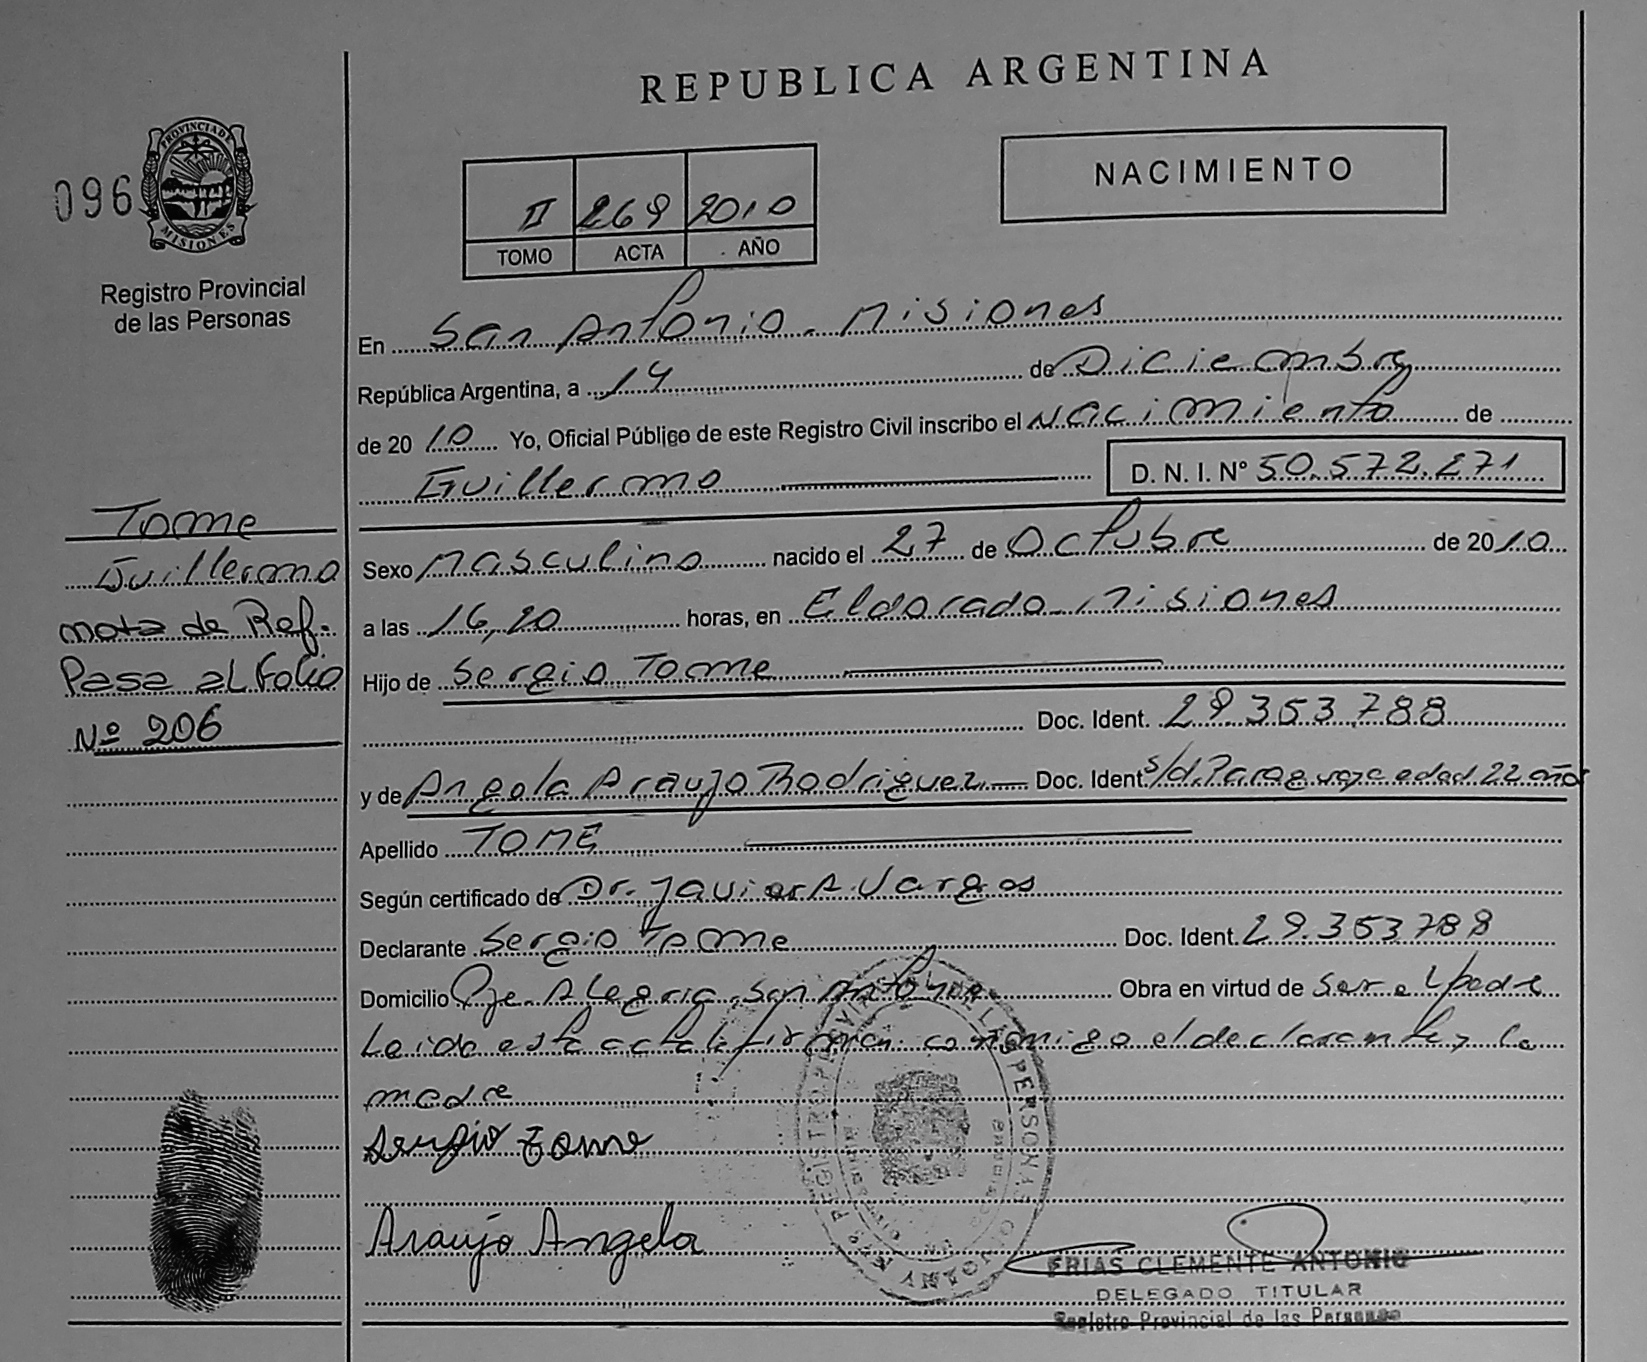 REPUBLICA ARGENTINA
096
PROVINCIA DE
MISIONES
Registro Provincial
de las Personas
II 269 2010
TOMO ACTA AÑO
NACIMIENTO
En San Antonio - Misiones
República Argentina, a 14 de Diciembre
de 2010 Yo, Oficial Público de este Registro Civil inscribo el Nacimiento de
Guillermo D. N. I. Nº 50.572.271
Sexo Masculino nacido el 27 de Octubre de 2010
a las 16,20 horas, en Eldorado - Misiones
Hijo de Sergio Tome
Doc. Ident. 29.353.788
y de Angela Araujo Rodriguez Doc. Ident s/d. Paraguaya edad 22 años
Apellido TOME
Según certificado de Dr. Javier A. Vargas
Declarante Sergio Tome Doc. Ident. 29.353.788
Domicilio Pje. Alegria, San Antonio Obra en virtud de ser el padre
Leida esta acta la firman conmigo el declarante y la
madre
Sergio Tome
Araujo Angela
FRIAS CLEMENTE ANTONIO
DELEGADO TITULAR
Registro Provincial de las Personas
Tome
Guillermo
nota de Ref.
Pasa al Folio
Nº 206